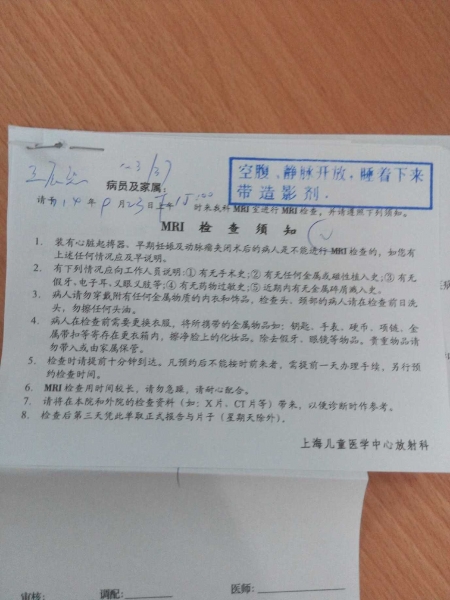 空腹、静脉开放,睡着下来
带造影剂.
病员及家属:
请于14年9月23日下午15:00时来我科MRI室进行MRI检查,并请遵照下列须知。
MRI 检 查 须 知
1. 装有心脏起搏器、早期妊娠及动脉瘤夹闭术后的病人是不能进行MRI检查的,如您有
上述任何情况应及早说明。
2. 有下列情况应向工作人员说明:① 有无手术史;② 有无任何金属或磁性植入史;③ 有无
假牙、电子耳、义眼义肢等;④ 有无药物过敏史;⑤ 近期内有无金属碎屑溅入史。
3. 病人请勿穿戴附有任何金属物质的内衣和饰品,检查头、颈部的病人请在检查前日洗
头,勿擦任何头油。
4. 病人在检查前需要更换衣服,将所携带的金属物品如:钥匙、手表、硬币、项链、金
属带扣等寄存在更衣箱内,擦净脸上的化妆品,除去假牙、眼镜等物品。贵重物品请
勿带入或由家属保管。
5. 检查时请提前十分钟到达。凡预约后不能按时前来者,需提前一天办理手续,另行预
约检查时间。
6. MRI检查用时间较长,请勿急躁,请耐心配合。
7. 请将在本院和外院的检查资料(如:X片、CT片等)带来,以便诊断时作参考。
8. 检查后第三天凭此单取正式报告与片子(星期天除外)。
上海儿童医学中心放射科
审核: 调配: 医师: